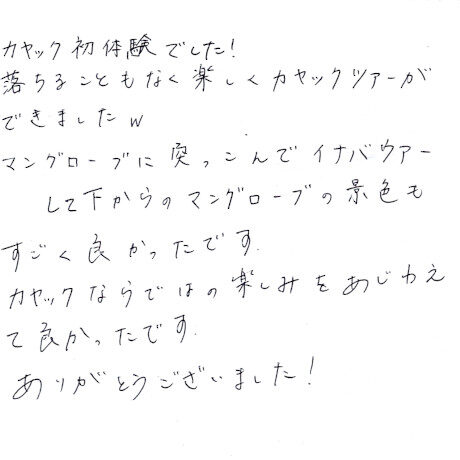 カヤック初体験でした!
落ちることもなく楽しくカヤックツアーが
できましたw
マングローブに突っこんでイナバウアー
して下からのマングローブの景色も
すごく良かったです.
カヤックならではの楽しみをあじわえ
て良かったです.
ありがとうございました!